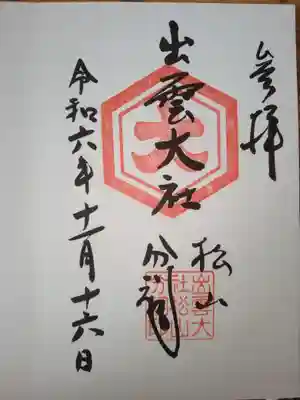 参拝
出雲大社
松山
分祠
大
出雲大
社松山
分祠
令和六年十一月十六日